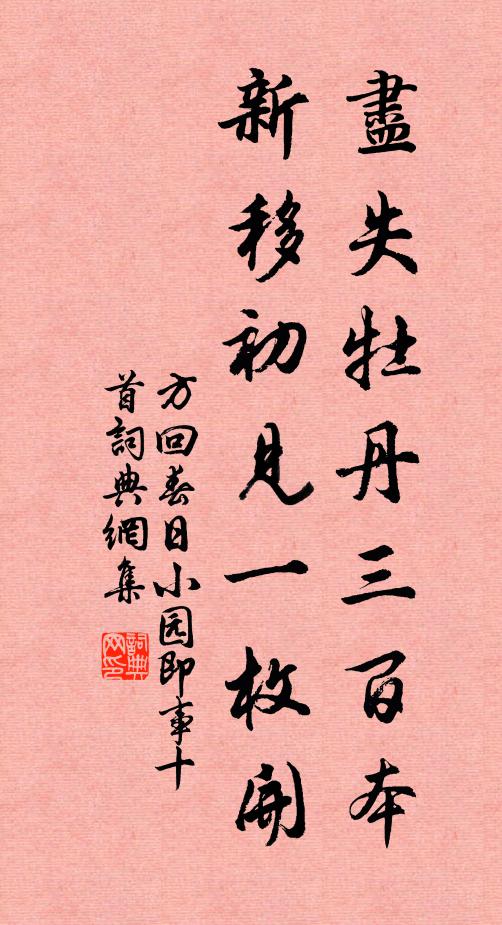 盡失牡丹三百本
新移初見一枚開
方回春日小园即事十
首詞典網集
詞典
网印